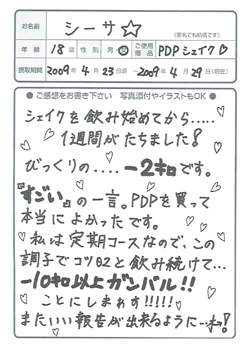 お名前 シーサ☆
(匿名でも結構です)
年齢 18歳 性別 男・女 ご使用商品 PDPシェイク♡
摂取期間 2009年4月23日頃 〜2009年4月29日(現在)
●ご感想をお書き下さい 写真添付やイラストもOK●
シェイクを飲み始めてから.....
1週間がたちました!
びっくりの....−2キロです。
『すごい』の一言。PDPを買って
本当によかったです。
私は定期コースなので、この
調子でコツコツと飲み続けて...
−10キロ以上ガンバル!!
ことにしまぁす!!!!!
またいい報告が出来るように...ネッ!